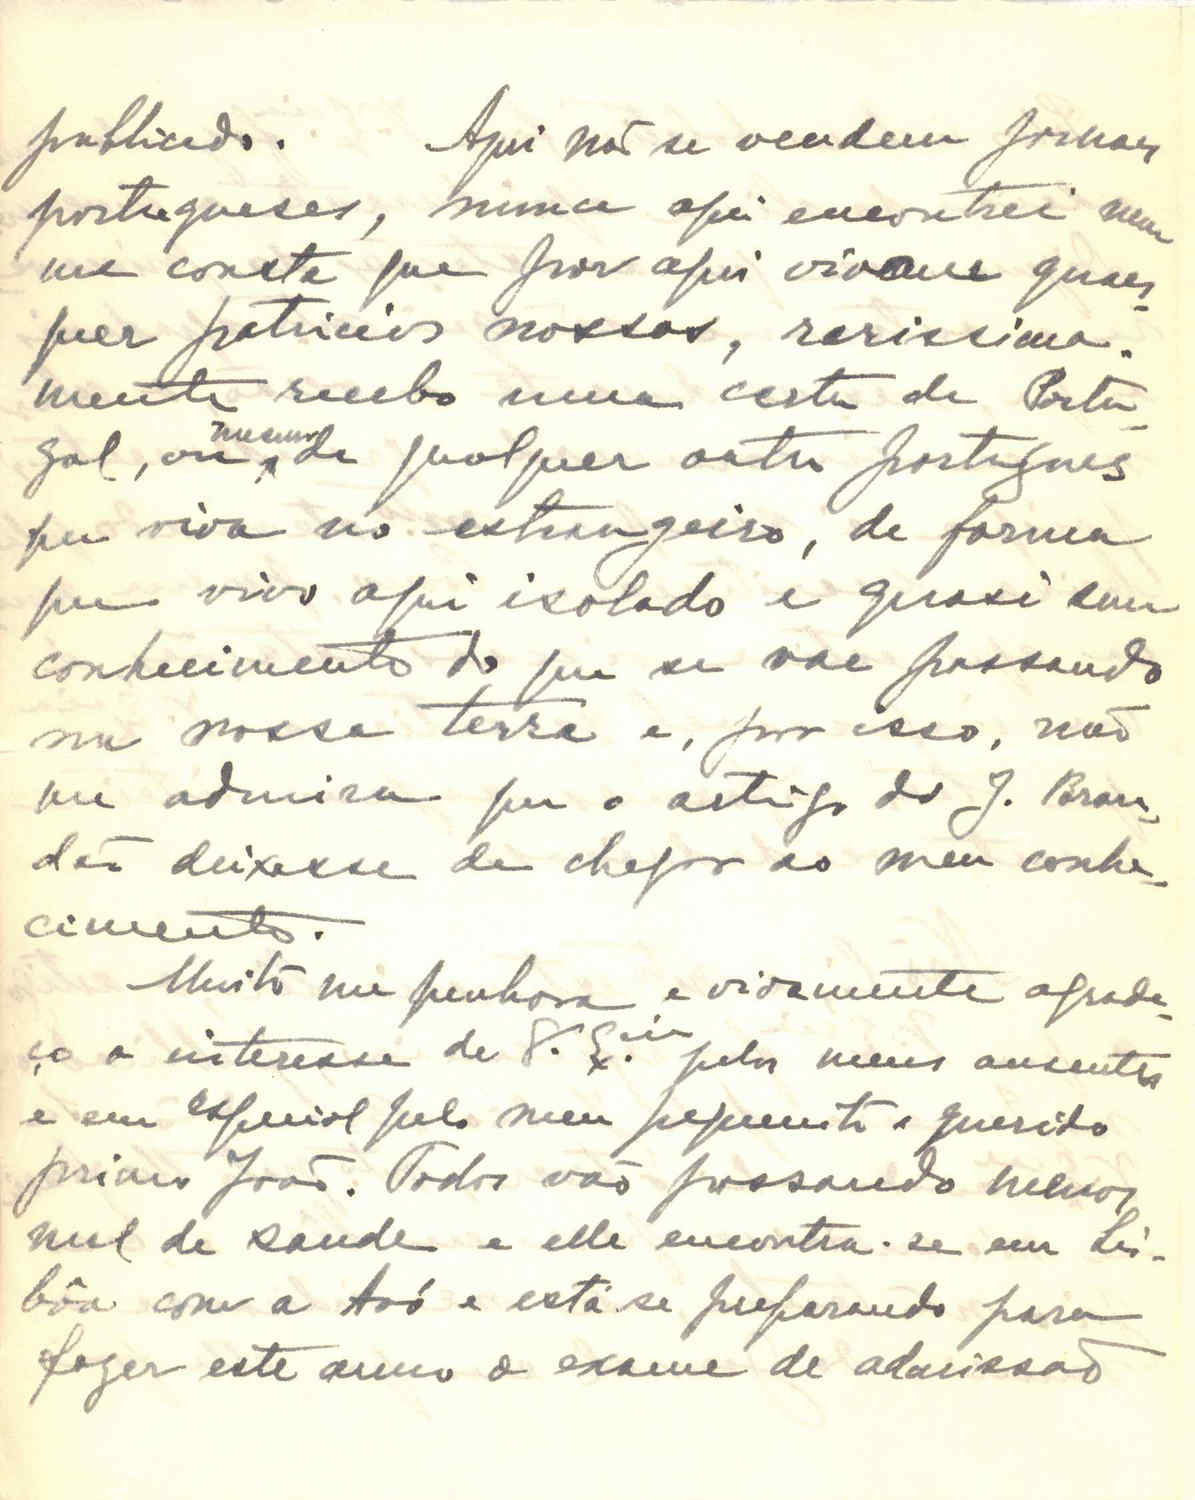 publicado. Aqui não se vendem jornaes
portugueses, nunca aqui encontrei nem
me consta que por aqui vivam quaes-
quer patricios nossos, rarissima-
mente recebo uma carta de Portu-
gal, ou mesmo de qualquer outro portugues
que viva no estrangeiro, de forma
que vivo aqui isolado e quasi sem
conhecimento do que se vae passando
na nossa terra e, por isso, não
me admira que o artigo do J. Bran-
dão deixasse de chegar ao meu conhe-
cimento.
Muito me penhora e vivamente agrade-
ço o interesse de V. Ex.cia pelos meus ausentes
e em especial pelo meu pequenito e querido
primo João. Todos vão passando menos
mal de saude e elle encontra-se em Lis-
bôa com a Avó e está-se preparando para
fazer este anno o exame de admissão